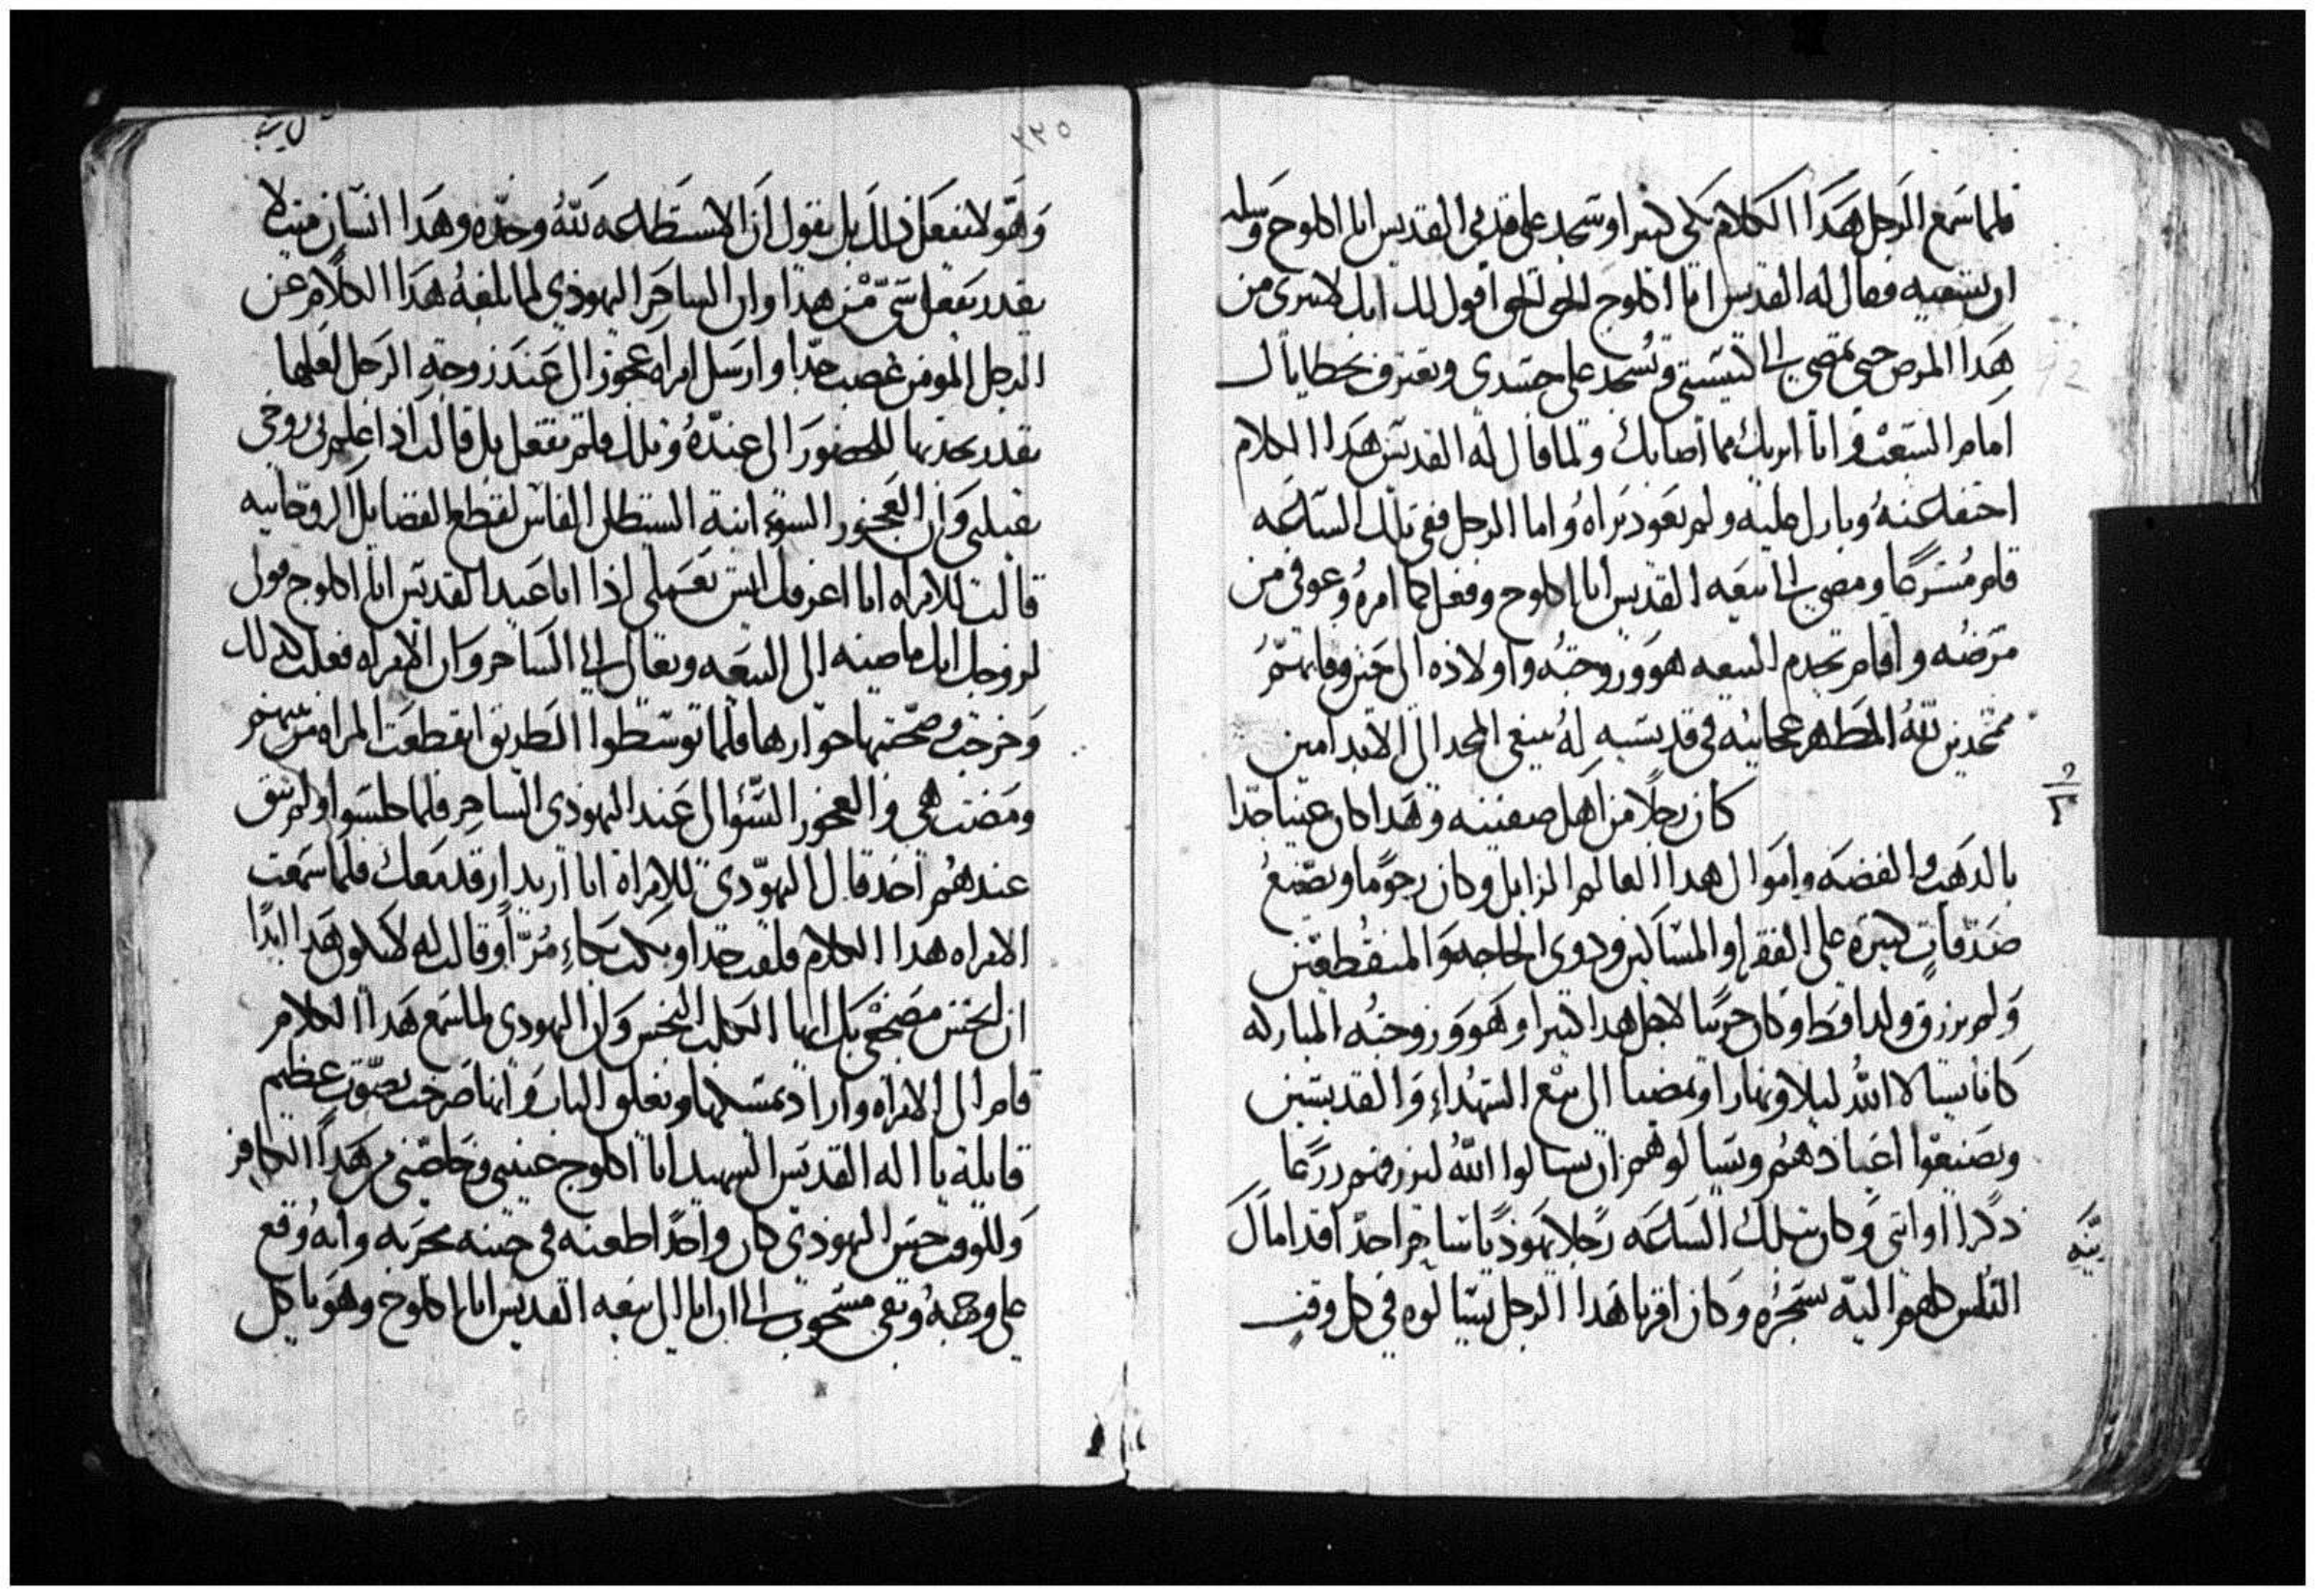 فلما سمع الرجل هدا الكلام بكى كتيرا وسجد على قدمي القديس ابا اكلوج وسله
ان يشفيه فقال له القديس ابا اكلوج الحق الحق اقول لك انك لا تبرى من
هدا المرض حتى تمضي الى كنيستي وتسجد على جسدى وتعترف بخطاياك
امام الشعب وانا ابريك مما اصابك ولما قال له القديس هدا الكلام
اختفا عنه وبارك عليه ولم يعود يراه واما الرجل ففي تلك الساعه
قام مسرعا ومضى الى بيعه القديس ابا اكلوج وفعل كما امره وعوفي من
مرضه واقام يخدم البيعه هو وزوجته واولاده الى حين وفاتهم
ممجدين لله المظهر عجايبه في قديسيه له ينبغي المجد الى الابد امين
كان رجلا من اهل صفتينه وهدا كان غنيا جدا
بالدهب والفضه واموال هدا العالم الزايل وكان رحوما ويصنع
صدقات كتيره على الفقرا والمساكين ودوى الحاجه والمنقطعين
ولم يرزق ولدا قط وكان حزينا لاجل هدا كتيرا وهو وزوجته المباركه
كانا يسالا الله ليلا ونهارا ويمضيا الى بيع الشهداء والقديسين
ويصنعوا اعيادهم ويسالوهم ان يسالوا الله ليرزقهم زرعا
دكرا او انتى وكان بتلك الساعه رجلا يهوديا ساحرا جدا قد امال
الناس كلهم اليه بسحره وكان اقربا هدا الرجل يسالوه في كل وقت
٢٢٥
وهو لا يفعل ذلك بل يقول ان الاستطاعه لله وحده وهدا انسان ميت لا
يقدر يفعل شى من هدا وان الساحر اليهودي لما بلغه هدا الكلام عن
الرجل المومن غضب جدا وارسل امراه عجوز الى عند زوجة الرجل لعلها
تقدر تجدبها للحضور الى عنده وتلك فلم تفعل بل قالت ادا علم بى زوجي
يقتلني وان العجوز السوء ابنة الشيطان الفاس لقطع الفضايل الروحانيه
قالت للامراه انا اعرفك ايش تعملى ادا اتا عيد القديس ابا اكلوج قولي
لزوجك انك ماضيه الى البيعه وتعالي الى الساحر وان الامراه فعلت كدلك
وخرجت وصحبتها جوارها فلما توسطوا الطريق انقطعت المراه من بينهم
ومضت هي والعجوز السوء الى عند اليهودى الساحر فلما جلسوا ولم يبق
عندهم احد قال اليهودى للامراه انا اريد ارقد معك فلما سمعت
الامراه هدا الكلام قلقت جدا وبكت بكاء مرا وقالت له لا يكون هدا ابدا
ان تنجس مضجعي بك ايها الكلب النجس وان اليهودى لما سمع هدا الكلام
قام الى الامراه واراد يمسكها ويغلق الباب وانها صرخت بصوت عظيم
قايلة يا اله القديس الشهيد ابا اكلوج عينني وخلصني من هدا الكافر
وللوقت حس اليهودى كان واحدا طعنه في جنبه بحربه وانه وقع
على وجهه وبقي مسحوب الى ان اتا الى بيعه القديس ابا اكلوج وهو ياكل